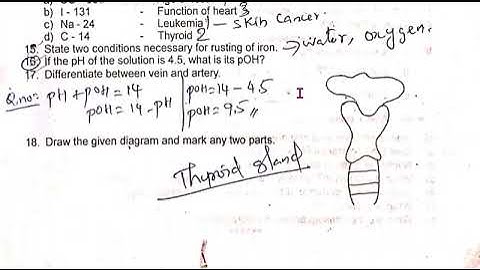 b) I - 131 - Function of heart 3
c) Na - 24 - Leukemia 1 – skin cancer.
d) C - 14 - Thyroid 2
15. State two conditions necessary for rusting of iron. → water, oxygen.
16. If the pH of the solution is 4.5, what is its pOH?
17. Differentiate between vein and artery.
Q.no:= pH + pOH = 14
pOH = 14 - pH
pOH = 14 - 4.5
pOH = 9.5 //
18. Draw the given diagram and mark any two parts.
Thyroid gland